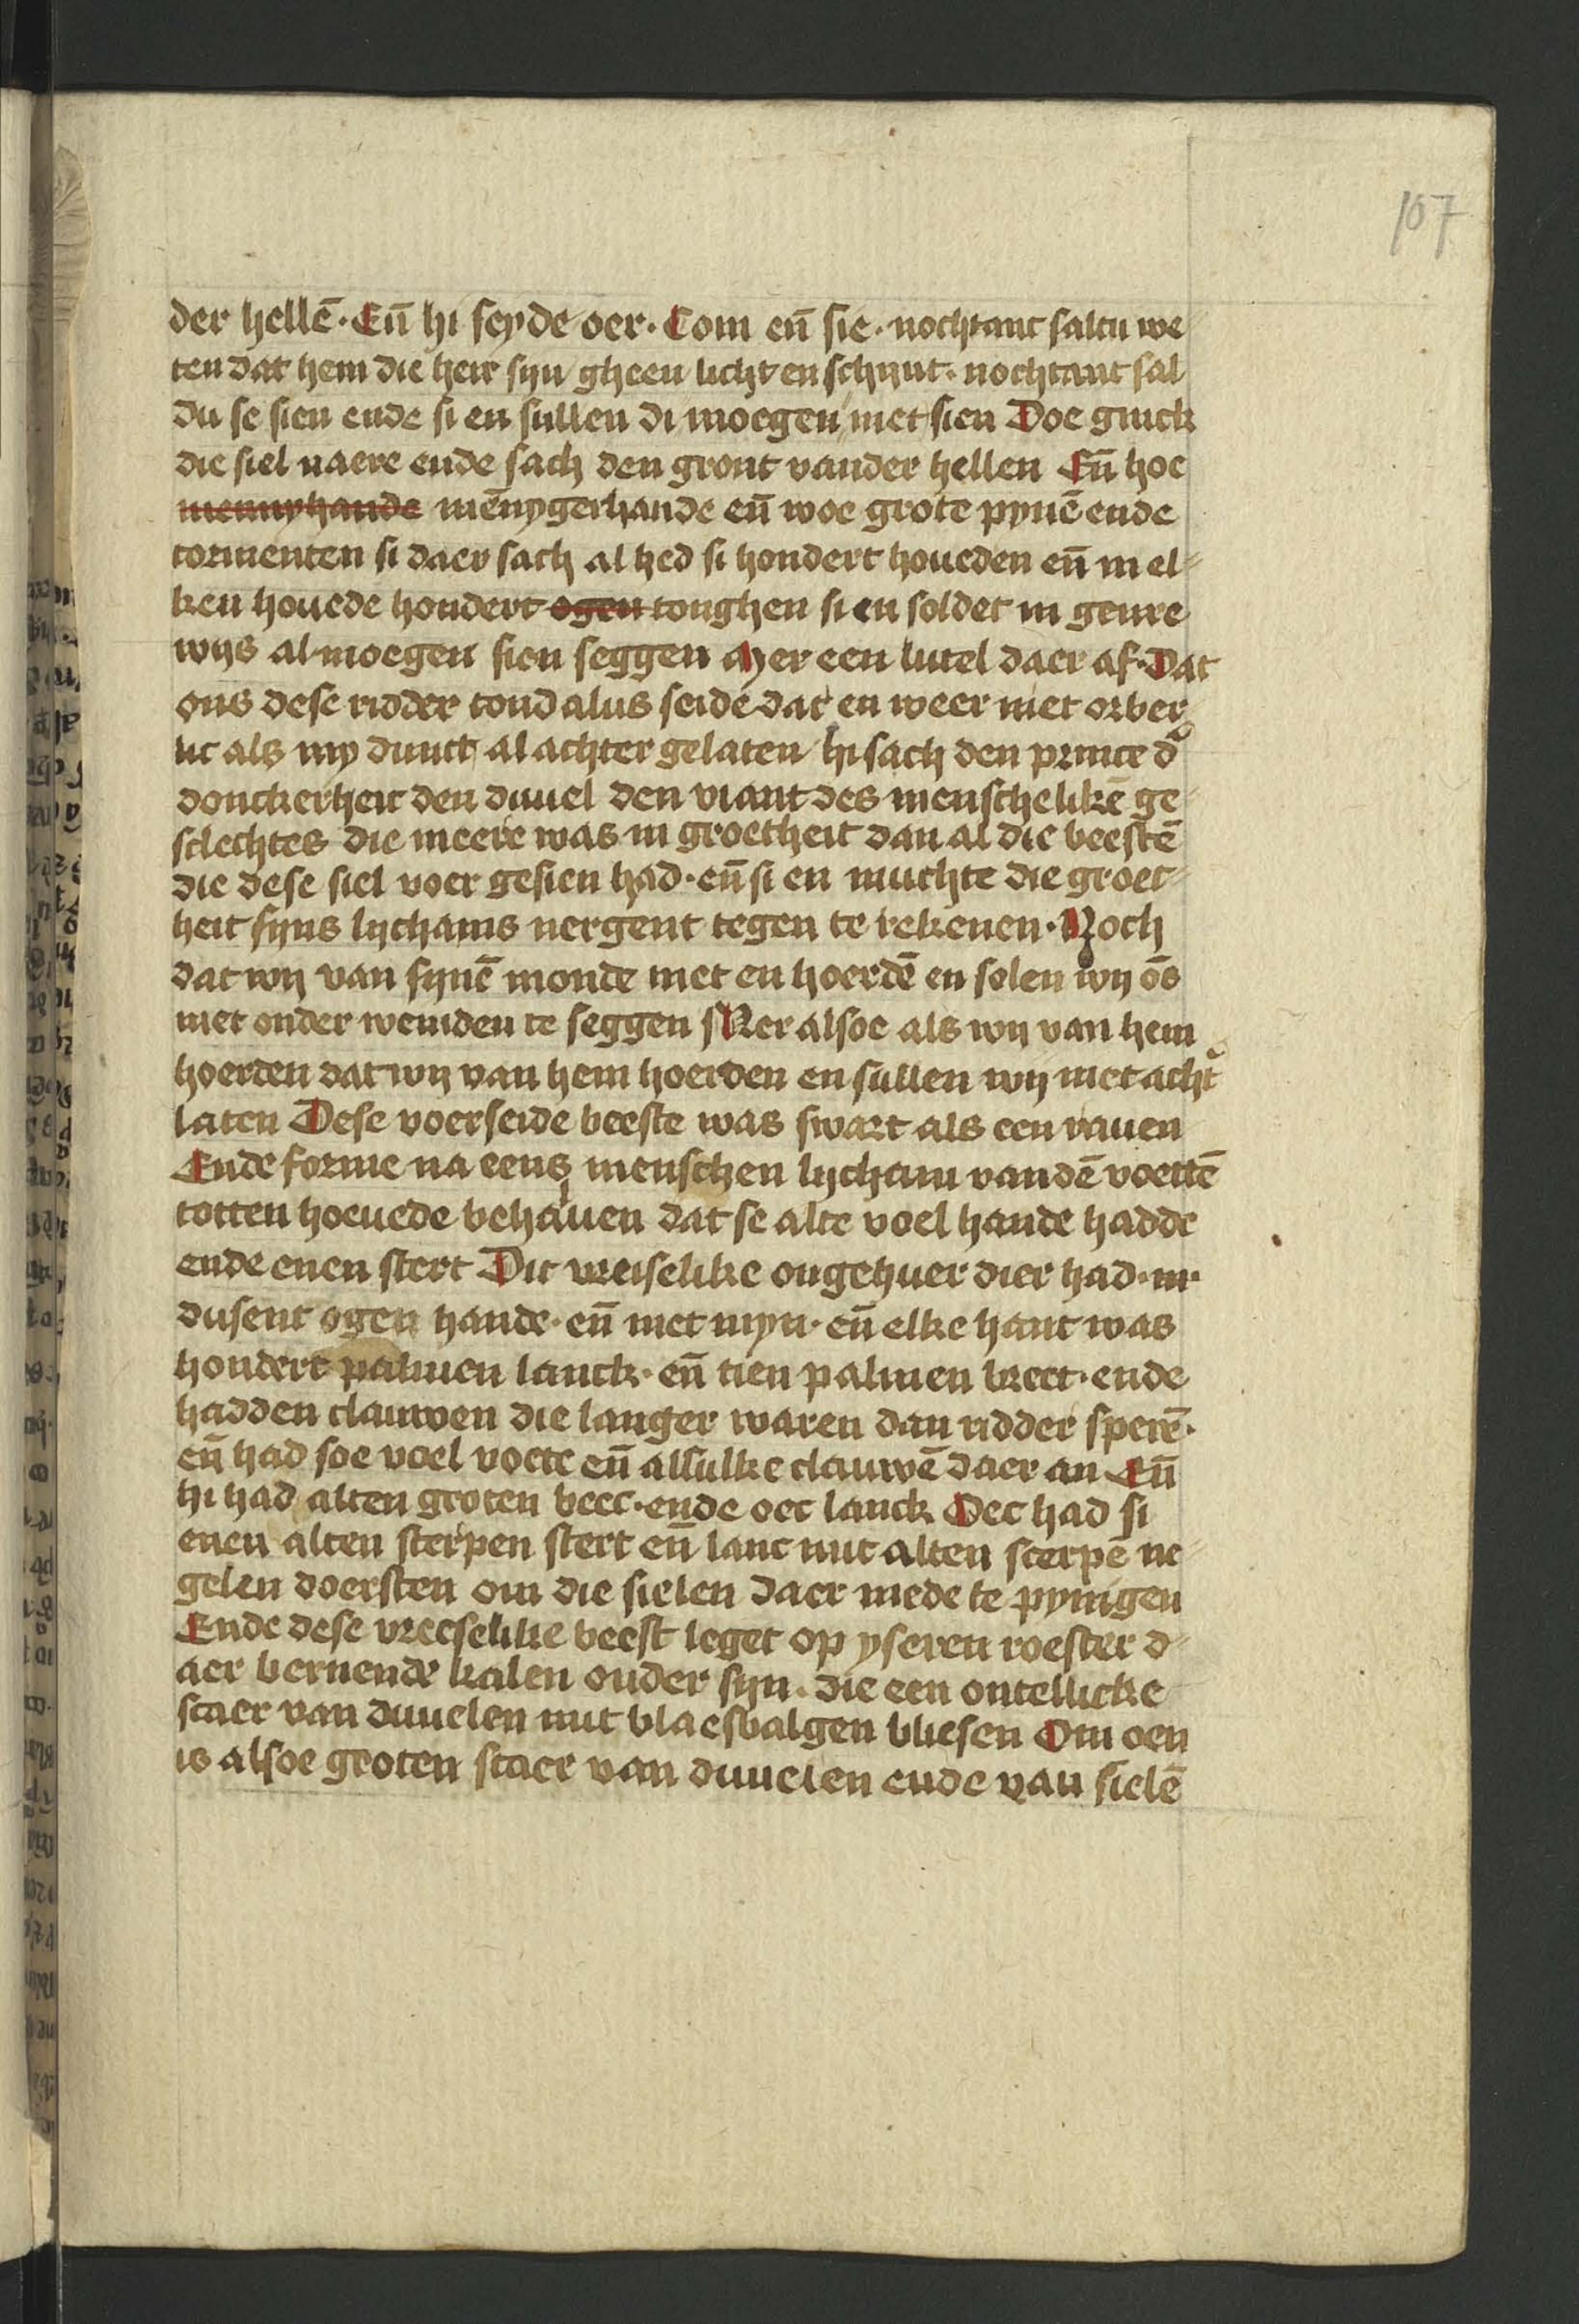 107
der hellē. Eñ hi seyde oer. Com eñ sie. nochtant saltu we
ten dat hem die heir syn gheen licht en schijnt. nochtant sal
du se sien ende si en sullen di moegen niet sien Doe ginck
die siel naere ende sach den gront vander hellen Eñ hoe
mennyhande mēnygerhande eñ woe grote pynē ende
tormenten si daer sach al hed si hondert houeden eñ in el-
ken houede hondert ogen tonghen si en soldet in genre
wijs al moegen sien seggen Mer een lutel daer af. Dat
ons dese ridder tondalus seide dat en weer niet orber
lic als my dunct al achter gelaten hi sach den prince d'
donckerheit den duuel den viant des menschelikē ge-
sclechtes die meere was in groetheit dan al die beestē
die dese siel voer gesien had. eñ si en muchte die groet-
heit syns lychams nergent tegen te rekenen. Noch
dat wij van synē monde niet en hoerdē en solen wij ōs
niet onder wenden te seggen Mer alsoe als wij van hem
hoerden dat wij van hem hoerden en sullen wij niet acht'
laten Dese voerseide beeste was swart als een rauen
Ende forme na eens menschen lycham vandē voettē
totten hoeuede behauen dat se alte voel hande hadde
ende enen stert Dit vreiselike ongehuer dier had. m.
dusent ogen hande. eñ niet myn. eñ elke hant was
hondert palmen lanck. eñ tien palmen breet. ende
hadden clauwen die langer waren dan ridder sperē.
eñ had soe voel voete eñ alsulke clauwē daer an Eñ
hi had alten groten bec. ende oec lanck Oec had si
enen alten sterpen stert eñ lanc mit alten scerpē ne-
gelen doersten om die sielen daer mede te pynigen
Ende dese vreeselike beest leget op yseren roester d-
aer bernende kalen onder syn. die een ontellicke
scaer van duuelen mit blaesbalgen bliesen Om oen
is alsoe groten scaer van duuelen ende van sielē